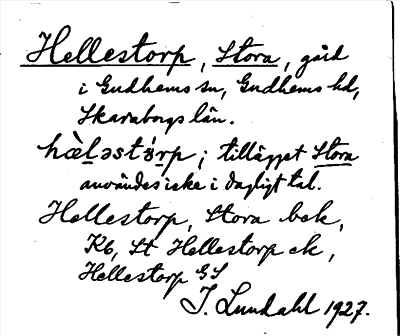 Hellestorp, Stora, gård
i Gudhems sn, Gudhems hd,
Skaraborgs län.
hæ̀l̠əstɷ́r̠p; tillägget Stora
användes icke i dagligt tal.
Hellestorp, Stora bek,
Kb, St Hellestorp ek,
Hellestorp GS
J. Lundahl 1927.